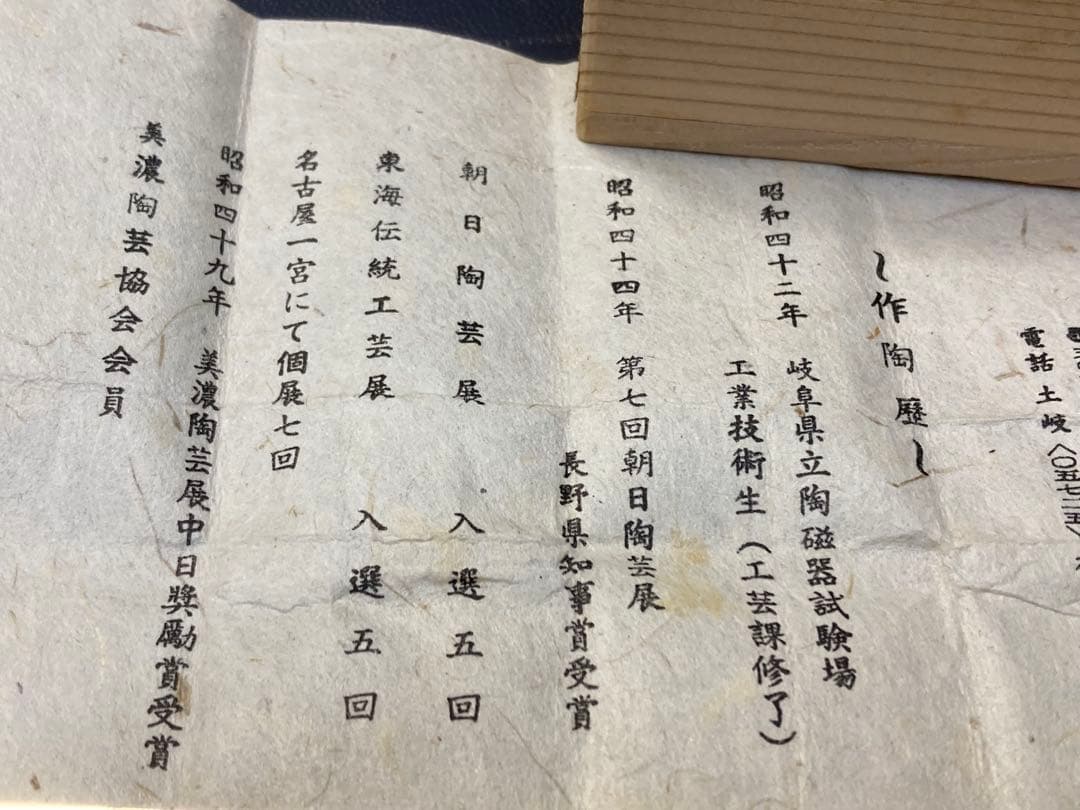 電話 土岐〈〇五七二五〉
〜作陶歴〜
昭和四十二年 岐阜県立陶磁器試験場
工業技術生（工芸課修了）
昭和四十四年 第七回朝日陶芸展
長野県知事賞受賞
朝日陶芸展 入選五回
東海伝統工芸展 入選五回
名古屋一宮にて個展七回
昭和四十九年 美濃陶芸展中日奨励賞受賞
美濃陶芸協会会員